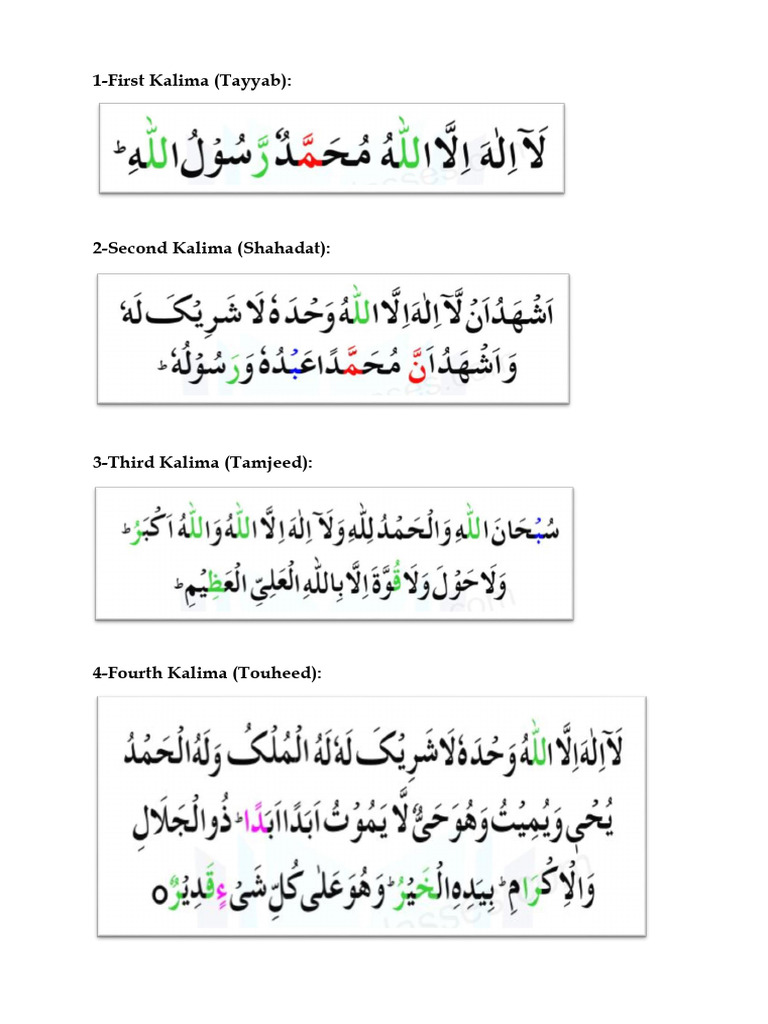 1-First Kalima (Tayyab):
لَآ اِلٰهَ اِلَّا اللّٰهُ مُحَمَّدٌ رَّسُوْلُ اللّٰهِ ؕ
2-Second Kalima (Shahadat):
اَشْهَدُ اَنْ لَّآ اِلٰهَ اِلَّا اللّٰهُ وَحْدَهٗ لَا شَرِيْكَ لَهٗ
وَ اَشْهَدُ اَنَّ مُحَمَّدًا عَبْدُهٗ وَ رَسُوْلُهٗ ؕ
3-Third Kalima (Tamjeed):
سُبْحَانَ اللّٰهِ وَالْحَمْدُ لِلّٰهِ وَلَآ اِلٰهَ اِلَّا اللّٰهُ وَاللّٰهُ اَكْبَرُ ؕ
وَلَا حَوْلَ وَلَا قُوَّةَ اِلَّا بِاللّٰهِ الْعَلِيِّ الْعَظِيْمِ ؕ
4-Fourth Kalima (Touheed):
لَآ اِلٰهَ اِلَّا اللّٰهُ وَحْدَهٗ لَا شَرِيْكَ لَهٗ لَهُ الْمُلْكُ وَلَهُ الْحَمْدُ
يُحْیٖ وَيُمِيْتُ وَهُوَ حَیٌّ لَّا يَمُوْتُ اَبَدًا اَبَدًا ؕ ذُو الْجَلَالِ
وَالْاِكْرَامِ ؕ بِيَدِهِ الْخَيْرُ ؕ وَهُوَ عَلٰى كُلِّ شَیْءٍ قَدِيْرٌ ۝